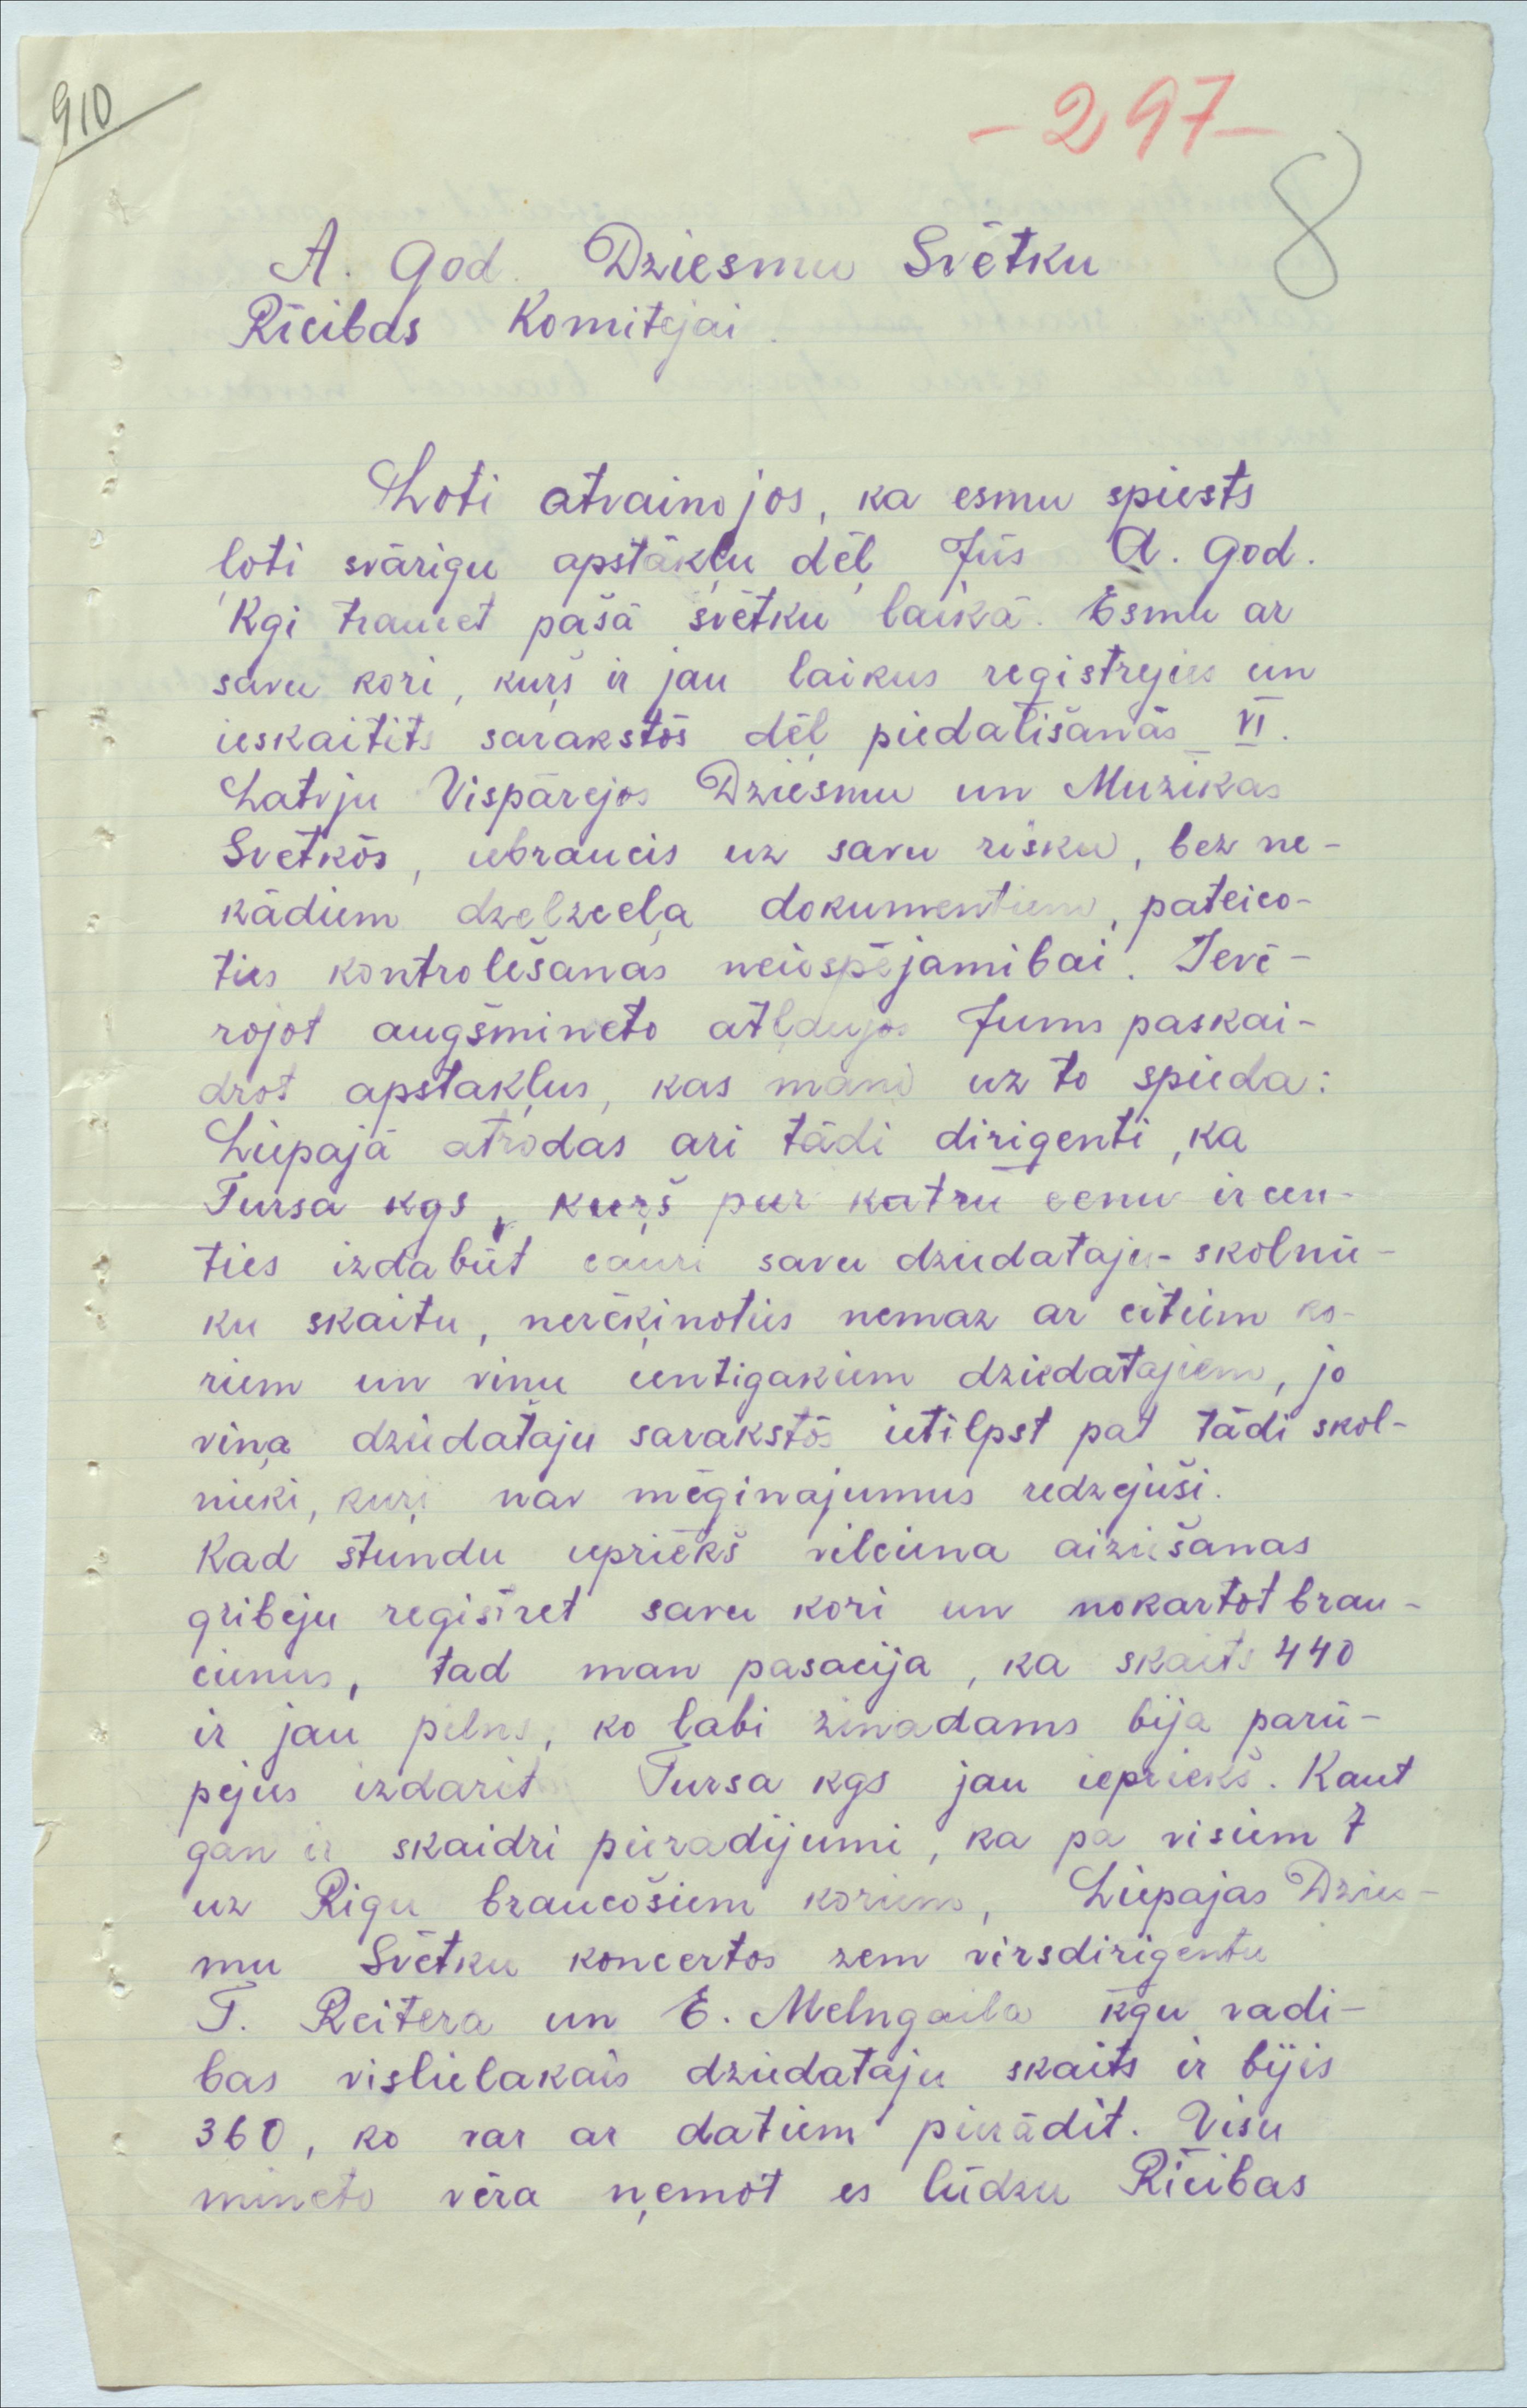 910
-297-
8
A. God. Dziesmu Svētku
Rīcibas Komitejai.
Loti atvainojos, ka esmu spiests
ļoti svārigu apstākļu dēļ Jūs A. God.
Kgi traucet pašā svētku laikā. Esmu ar
savu kori, kuŗš ir jau laikus registrejies un
ieskaitits sarakstōs dēļ piedališanās VI.
Latvju Vispārejos Dziesmu un Muzikas
Svētkōs, iebraucis uz savu risku, bez ne-
kādiem dzelzceļa dokumentiem, pateico-
ties kontrolēšanas neiespējamibai. Ievē-
rojot augšmineto atļaujos Jums paskai-
drot apstākļus, kas mani uz to spieda:
Liepajā atrodas ari tādi dirigenti, ka
Tursa kgs, kuŗš par katru cenu ir cen-
ties izdabūt cauri savu dziedataju-skolnie-
ku skaitu, nerēķinoties nemaz ar citiem ko-
riem un viņu centigakiem dziedatajiem, jo
viņa dziedatāju sarakstōs ietilpst pat tādi skol-
nieki, kuŗi nav mēginajumus redzejuši.
Kad stundu iepriekš vilciena aiziešanas
gribeju registret savu kori un nokartot brau-
cienus, tad man pasacija, ka skaits 440
ir jau pilns, ko labi zinadams bija parū-
pejies izdarit Tursa kgs jau iepriekš. Kaut
gan ir skaidri pieradijumi, ka pa visiem 7
uz Rigu braucošiem koriem, Liepajas Dzies-
mu Svētku koncertos zem virsdirigentu
T. Reitera un E. Melngaiļa kgu vadi-
bas vislielakais dziedataju skaits ir bijis
360, ko var ar datiem pierādit. Visu
mineto vēra ņemot es lūdzu Rīcibas